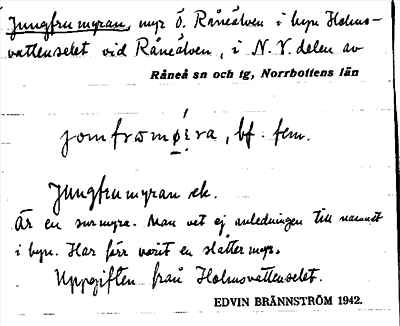 Jungfrumyran, myr Ö. Råneälven i byn Holms-
vattenselet vid Råneälven, i N.V. delen av
Råneå sn och tg, Norrbottens län
jomfromø̀ra, bf. fem.
Jungfrumyran ek.
Är en surmyra. Man vet ej anledningen till namnet
i byn. Har förr varit en slåttermyr.
Uppgiften från Holmsvattenselet.
EDVIN BRÄNNSTRÖM 1942.